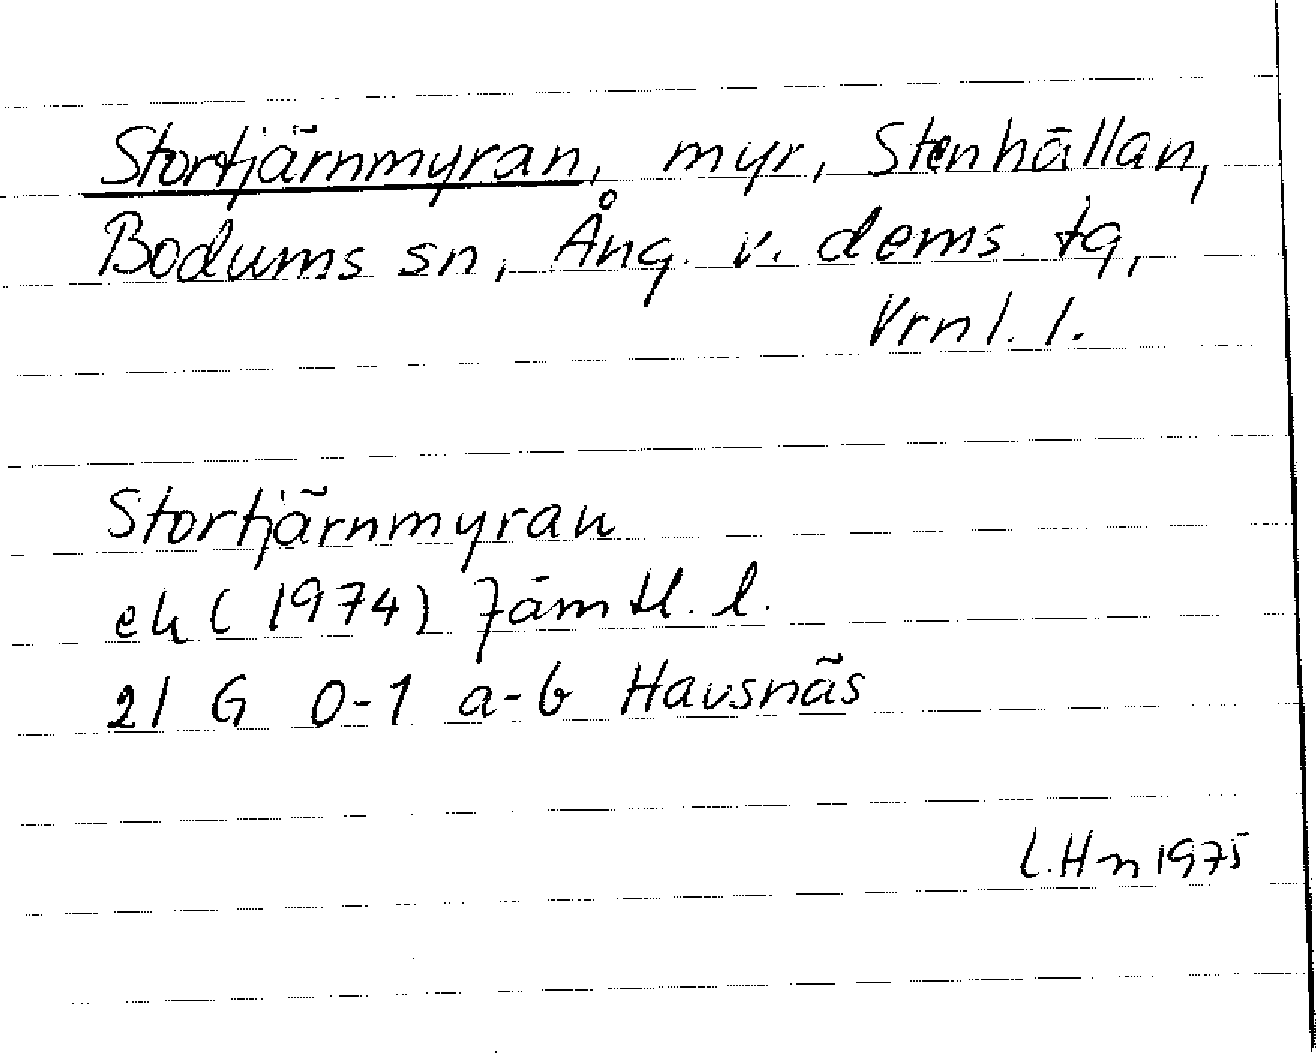 Stortjärnmyran, myr, Stenhällan,
Bodums sn, Ång. v. dems tg,
Vrnl. l.
Stortjärnmyran
ek (1974) Jämtl. l.
21 G 0-1 a-b Havsnäs
L. Hn 1975